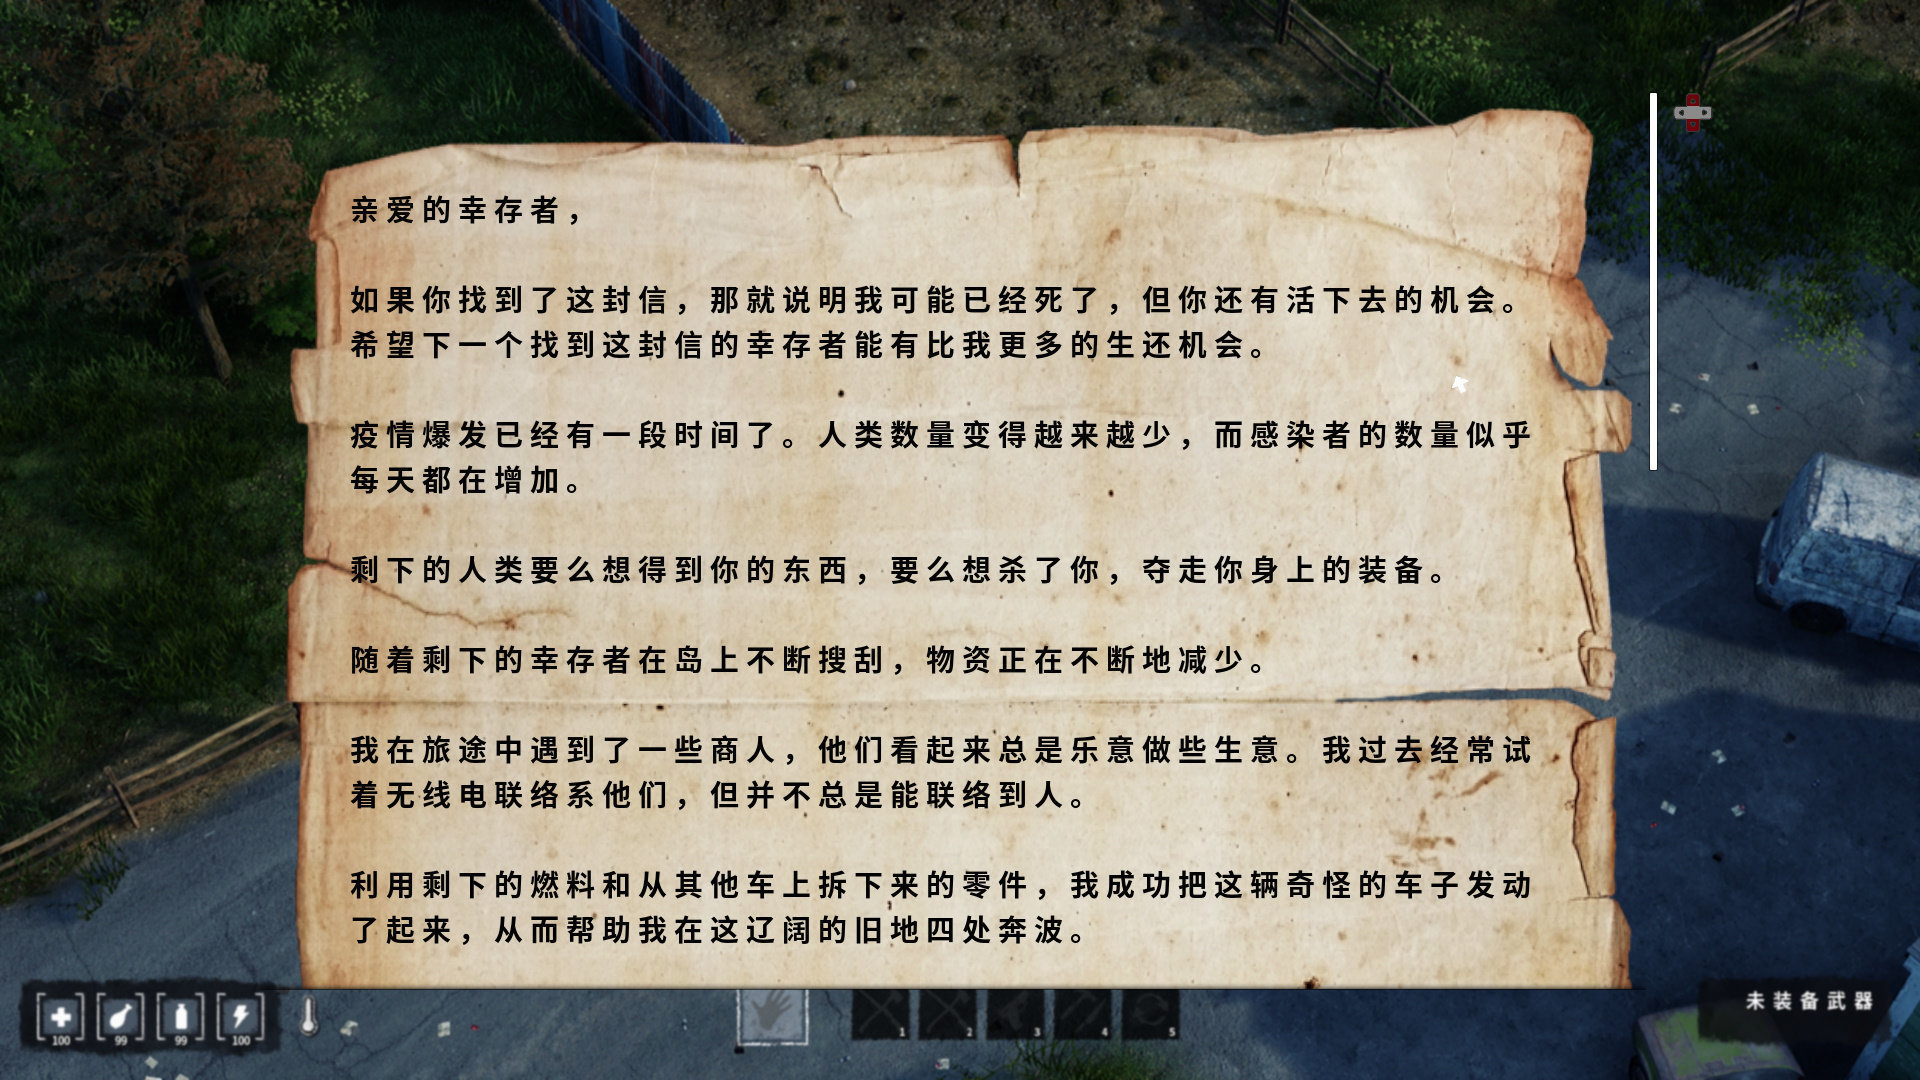 亲爱的幸存者，
如果你找到了这封信，那就说明我可能已经死了，但你还有活下去的机会。
希望下一个找到这封信的幸存者能有比我更多的生还机会。
疫情爆发已经有一段时间了。人类数量变得越来越少，而感染者的数量似乎
每天都在增加。
剩下的人类要么想得到你的东西，要么想杀了你，夺走你身上的装备。
随着剩下的幸存者在岛上不断搜刮，物资正在不断地减少。
我在旅途中遇到了一些商人，他们看起来总是乐意做些生意。我过去经常试
着无线电联络系他们，但并不总是能联络到人。
利用剩下的燃料和从其他车上拆下来的零件，我成功把这辆奇怪的车子发动
了起来，从而帮助我在这辽阔的旧地四处奔波。
100 99 99 100
1 2 3 4 5
未装备武器